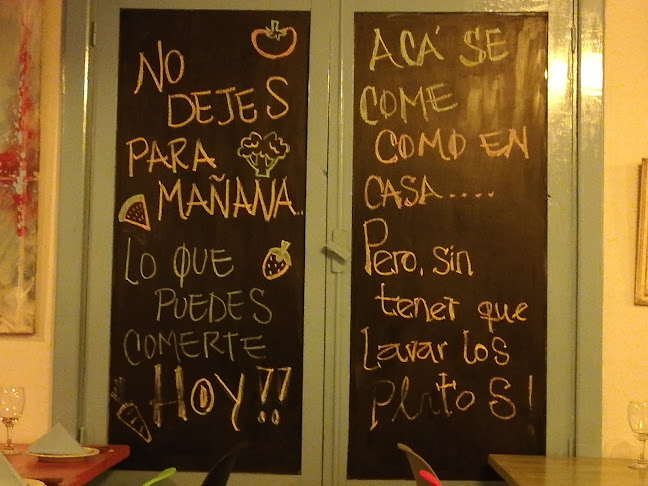 NO
DEJES
PARA
MAÑANA..
LO QUE
PUEDES
COMERTE
HOY!!
ACÁ SE
COME
COMO EN
CASA....
Pero, sin
tener que
lavar los
platos!